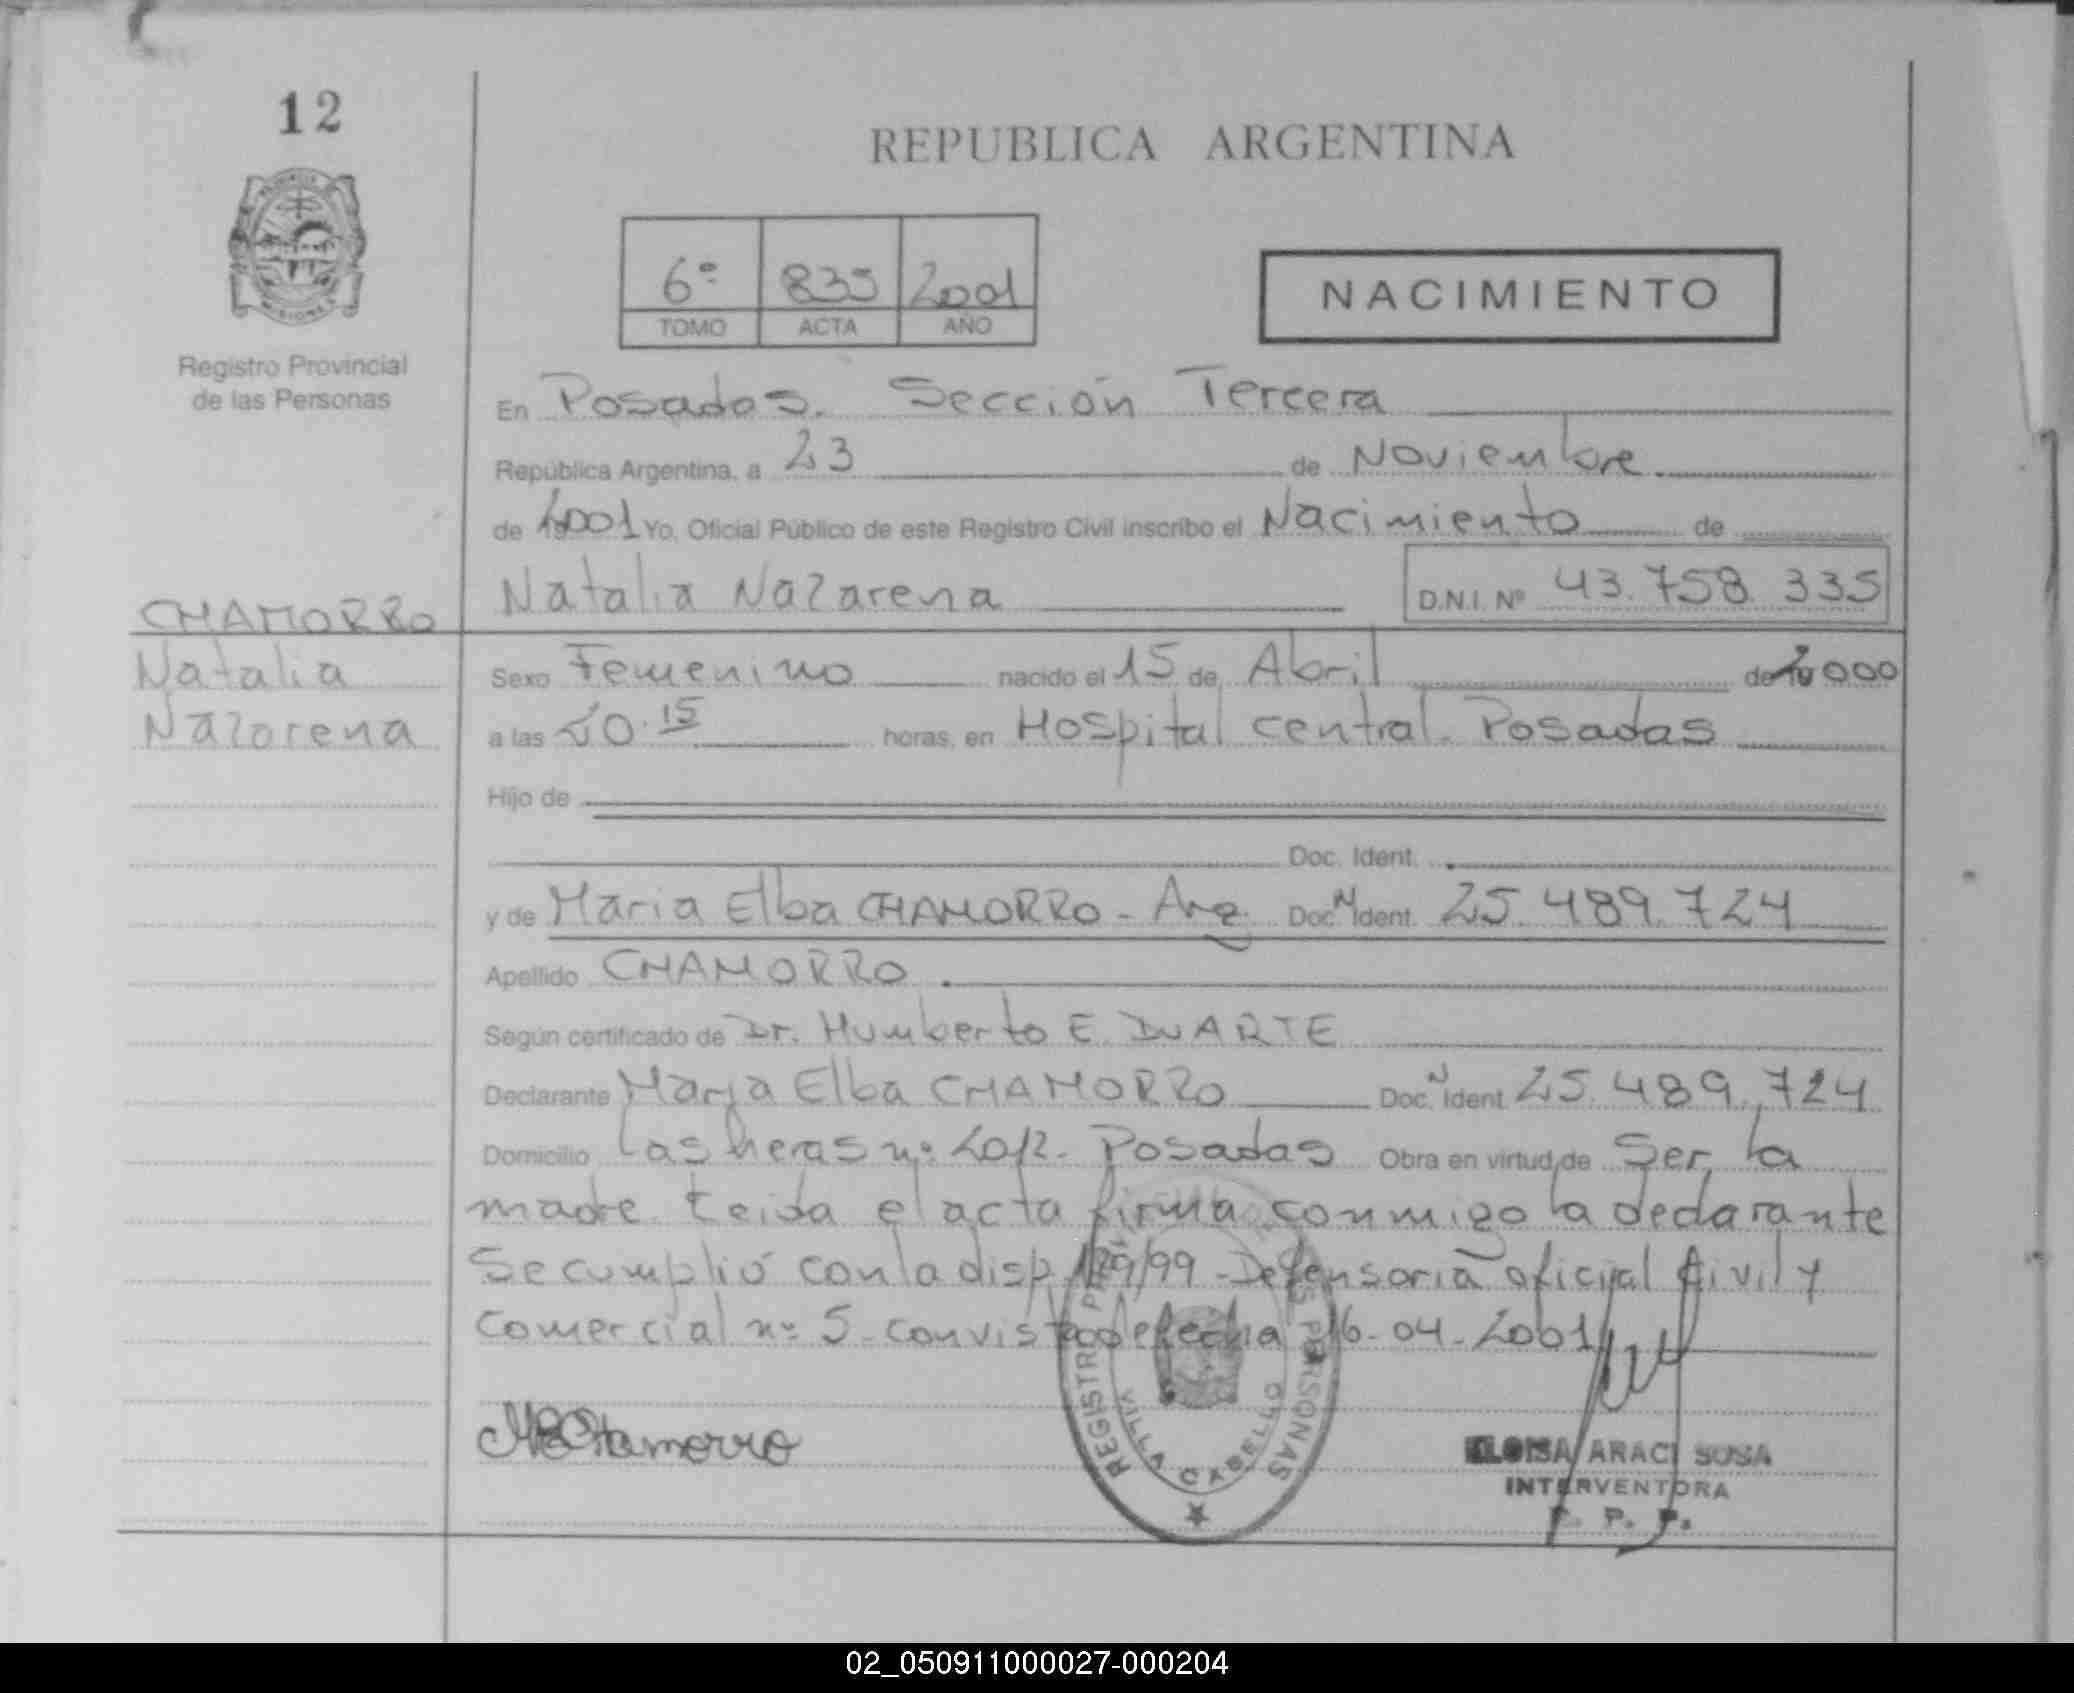 12
REPUBLICA ARGENTINA
6º 835 2001
TOMO ACTA AÑO
NACIMIENTO
Registro Provincial
de las Personas
En Posadas. Sección Tercera
República Argentina, a 23 de Noviembre
de 2001 Yo, Oficial Público de este Registro Civil inscribo el Nacimiento de
CHAMORRO
Natalia
Nazarena
Natalia Nazarena D.N.I. Nº 43.758.335
Sexo Femenino nacido el 15 de Abril de 2000
a las 20.15 horas, en Hospital central. Posadas
Hijo de
Doc. Ident.
y de Maria Elba CHAMORRO - Arg. Doc. N Ident. 25.489.724
Apellido CHAMORRO.
Según certificado de Dr. Humberto E. DUARTE
Declarante Maria Elba CHAMORRO Doc. N Ident. 25.489.724
Domicilio Las heras nº 2012. Posadas Obra en virtud de Ser la
madre. Leida el acta firma conmigo la declarante
Se cumplió con la disp. 129/99 - Defensoria oficial Civil y
Comercial nº 5. con vista de fecha 16-04-2001
MEChamorro
REGISTRO PERSONAS
VILLA CABELLO
ELOISA ARACI SOSA
INTERVENTORA
R. P. P.
02_050911000027-000204